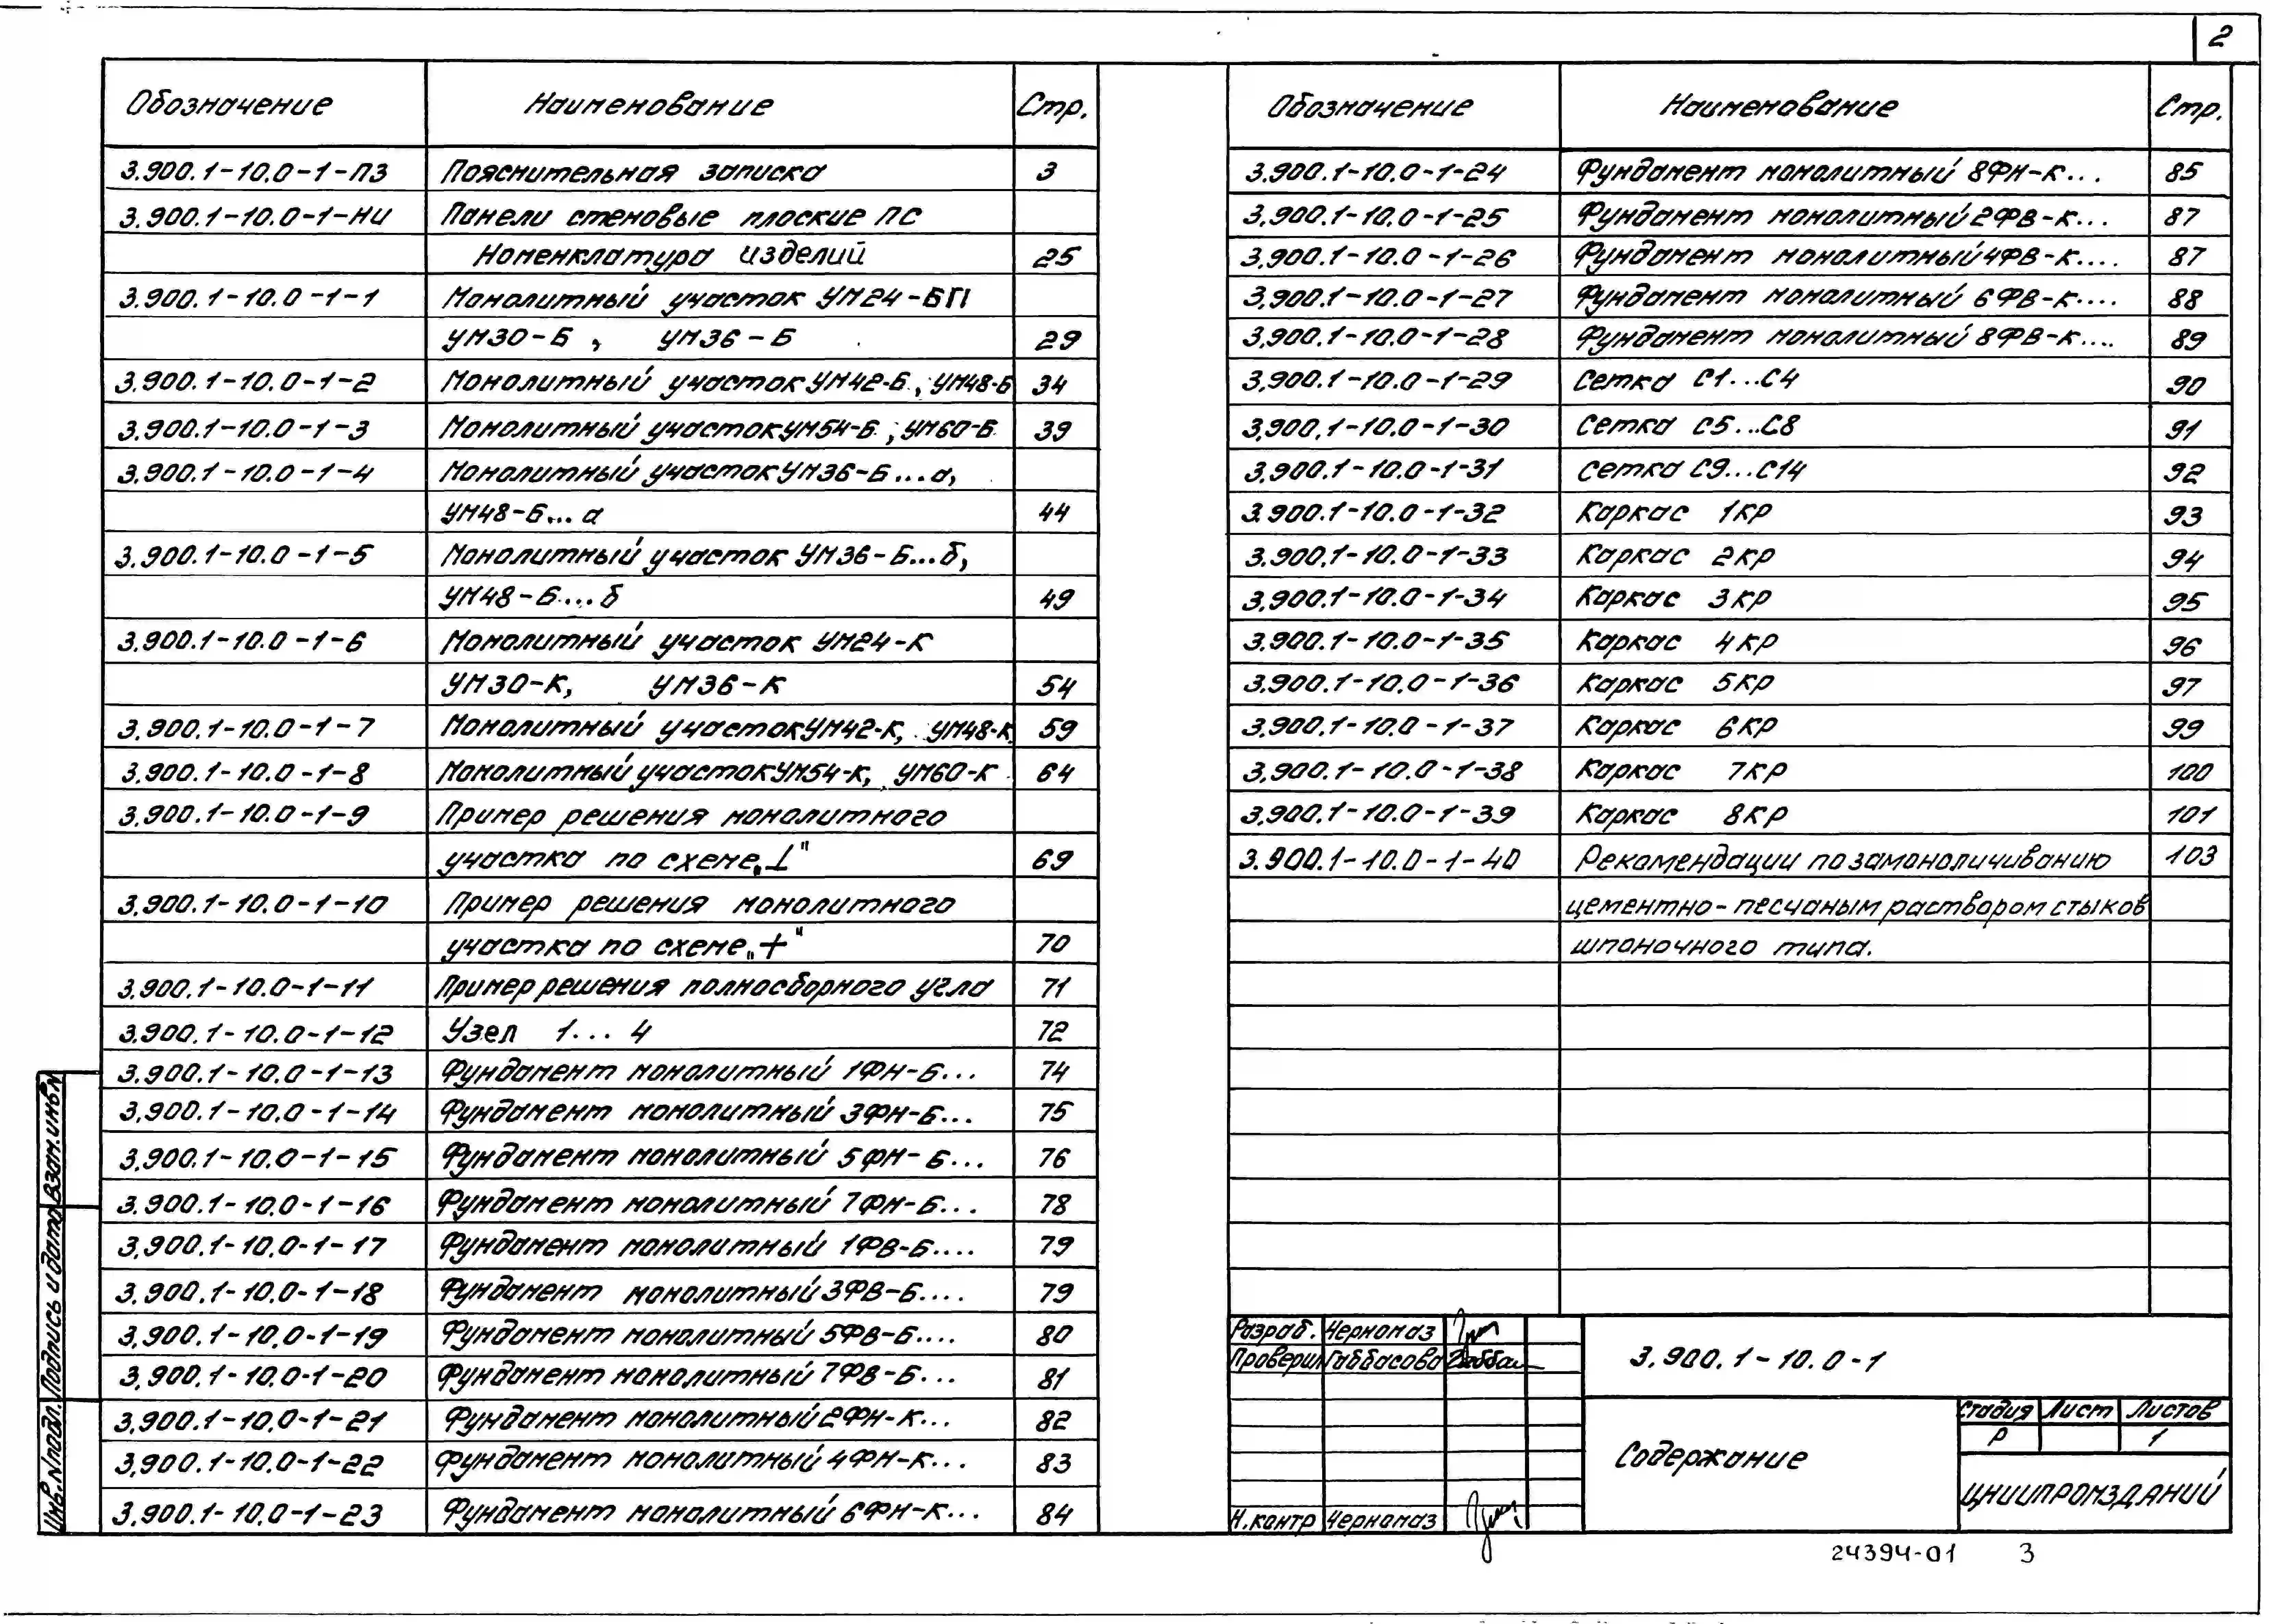 2
Обозначение Наименование Стр.
3.900.1-10.0-1-ПЗ Пояснительная записка 3
3.900.1-10.0-1-НИ Панели стеновые плоские ПС
Номенклатура изделий 25
3.900.1-10.0-1-1 Монолитный участок УМ24-БП
УМ30-Б, УМ36-Б 29
3.900.1-10.0-1-2 Монолитный участок УМ42-Б, УМ48-Б 34
3.900.1-10.0-1-3 Монолитный участок УМ54-Б, УМ60-Б 39
3.900.1-10.0-1-4 Монолитный участок УМ36-Б...а,
УМ48-Б...а 44
3.900.1-10.0-1-5 Монолитный участок УМ36-Б...б,
УМ48-Б...б 49
3.900.1-10.0-1-6 Монолитный участок УМ24-К
УМ30-К, УМ36-К 54
3.900.1-10.0-1-7 Монолитный участок УМ42-К, УМ48-К 59
3.900.1-10.0-1-8 Монолитный участок УМ54-К, УМ60-К 64
3.900.1-10.0-1-9 Пример решения монолитного
участка по схеме „⊥" 69
3.900.1-10.0-1-10 Пример решения монолитного
участка по схеме „+" 70
3.900.1-10.0-1-11 Пример решения полносборного угла 71
3.900.1-10.0-1-12 Узел 1...4 72
3.900.1-10.0-1-13 Фундамент монолитный 1ФН-Б... 74
3.900.1-10.0-1-14 Фундамент монолитный 3ФН-Б... 75
3.900.1-10.0-1-15 Фундамент монолитный 5ФН-Б... 76
3.900.1-10.0-1-16 Фундамент монолитный 7ФН-Б... 78
3.900.1-10.0-1-17 Фундамент монолитный 1ФВ-Б.... 79
3.900.1-10.0-1-18 Фундамент монолитный 3ФВ-Б.... 79
3.900.1-10.0-1-19 Фундамент монолитный 5ФВ-Б.... 80
3.900.1-10.0-1-20 Фундамент монолитный 7ФВ-Б... 81
3.900.1-10.0-1-21 Фундамент монолитный 2ФН-К... 82
3.900.1-10.0-1-22 Фундамент монолитный 4ФН-К... 83
3.900.1-10.0-1-23 Фундамент монолитный 6ФН-К... 84
Обозначение Наименование Стр.
3.900.1-10.0-1-24 Фундамент монолитный 8ФН-К... 85
3.900.1-10.0-1-25 Фундамент монолитный 2ФВ-К... 87
3.900.1-10.0-1-26 Фундамент монолитный 4ФВ-К.... 87
3.900.1-10.0-1-27 Фундамент монолитный 6ФВ-К.... 88
3.900.1-10.0-1-28 Фундамент монолитный 8ФВ-К.... 89
3.900.1-10.0-1-29 Сетка С1...С4 90
3.900.1-10.0-1-30 Сетка С5...С8 91
3.900.1-10.0-1-31 Сетка С9...С14 92
3.900.1-10.0-1-32 Каркас 1КР 93
3.900.1-10.0-1-33 Каркас 2КР 94
3.900.1-10.0-1-34 Каркас 3КР 95
3.900.1-10.0-1-35 Каркас 4КР 96
3.900.1-10.0-1-36 Каркас 5КР 97
3.900.1-10.0-1-37 Каркас 6КР 99
3.900.1-10.0-1-38 Каркас 7КР 100
3.900.1-10.0-1-39 Каркас 8КР 101
3.900.1-10.0-1-40 Рекомендации по замоноличиванию 103
цементно-песчаным раствором стыков
шпоночного типа.
Разраб. Черномаз
Проверил Габбасова Габбас
Н.контр Черномаз
3.900.1-10.0-1
Содержание
Стадия Лист Листов
Р 1
ЦНИИПРОМЗДАНИЙ
Инв.N подл. Подпись и дата Взам.инв.N
24394-01 3